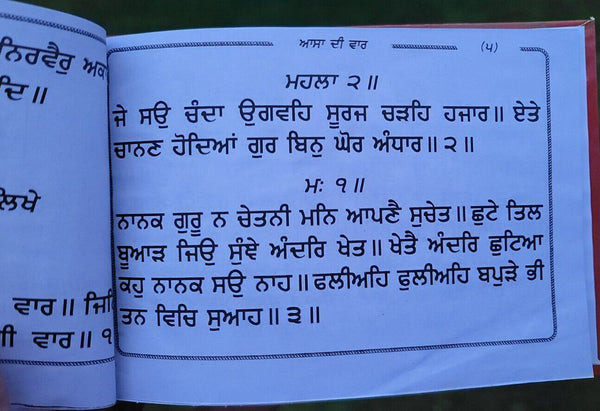 ਨਿਰਵੈਰੁ ਅਕਾ
ਦਿ॥
ਲਿਖੇ
ਵਾਰ॥ ਜਿ
ਵਾਰ॥ ੧
ਆਸਾ ਦੀ ਵਾਰ (੫)
ਮਹਲਾ ੨॥
ਜੇ ਸਉ ਚੰਦਾ ਉਗਵਹਿ ਸੂਰਜ ਚੜਹਿ ਹਜਾਰ॥ ਏਤੇ
ਚਾਨਣ ਹੋਦਿਆਂ ਗੁਰ ਬਿਨੁ ਘੋਰ ਅੰਧਾਰ॥੨॥
ਮਃ ੧॥
ਨਾਨਕ ਗੁਰੂ ਨ ਚੇਤਨੀ ਮਨਿ ਆਪਣੈ ਸੁਚੇਤ॥ ਛੁਟੇ ਤਿਲ
ਬੂਆੜ ਜਿਉ ਸੁੰਞੇ ਅੰਦਰਿ ਖੇਤ॥ ਖੇਤੈ ਅੰਦਰਿ ਛੁਟਿਆ
ਕਹੁ ਨਾਨਕ ਸਉ ਨਾਹ॥ ਫਲੀਅਹਿ ਫੁਲੀਅਹਿ ਬਪੁੜੇ ਭੀ
ਤਨ ਵਿਚਿ ਸੁਆਹ॥੩॥